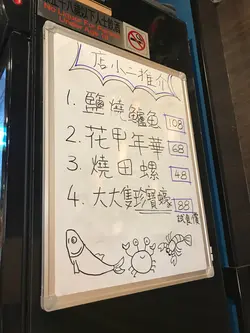 店小二推介
1. 鹽燒鱸魚 108
2. 花甲年華 68
3. 燒田螺 48
4. 大大隻珍寶蠔 88
試食價